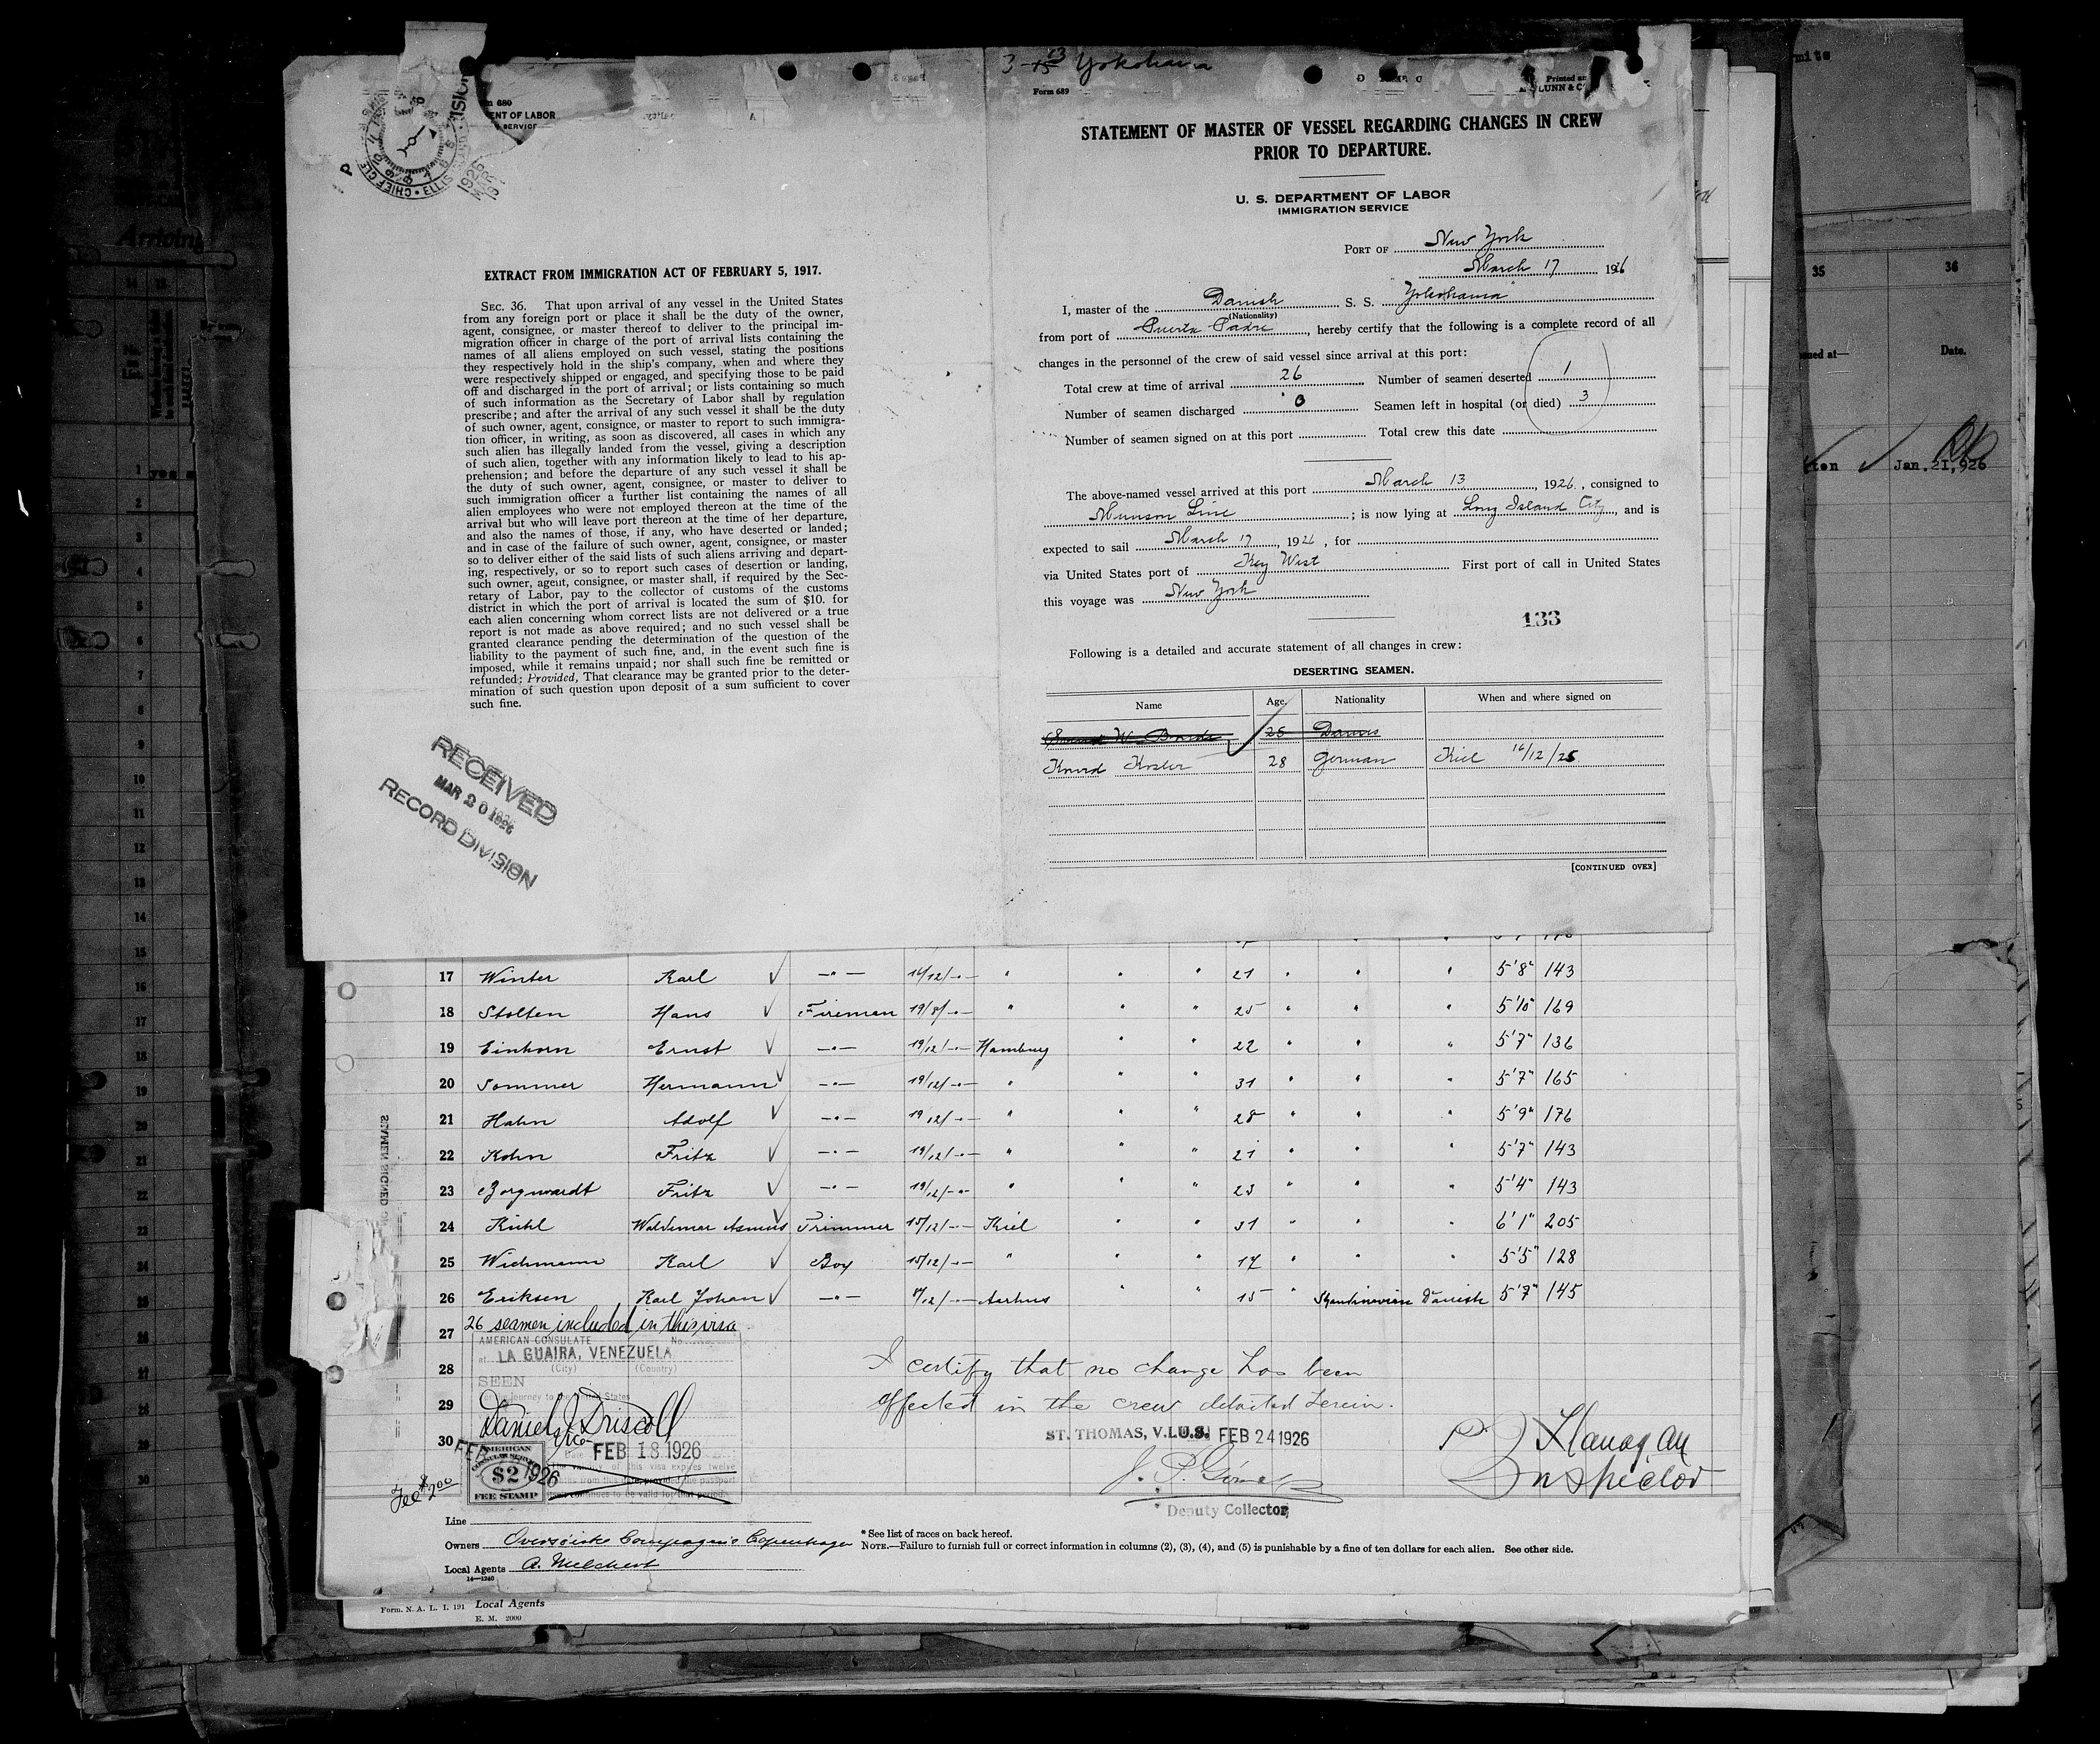 3-13 Yokohama
Form 689
Printed
LUNN & C
m 680
ENT OF LABOR
SERVICE
STATEMENT OF MASTER OF VESSEL REGARDING CHANGES IN CREW
PRIOR TO DEPARTURE.
U. S. DEPARTMENT OF LABOR
IMMIGRATION SERVICE
PORT OF New York
March 17 1926
I, master of the Danish S. S. Yokohama
(Nationality)
from port of Puerto Padre, hereby certify that the following is a complete record of all
changes in the personnel of the crew of said vessel since arrival at this port:
Total crew at time of arrival 26 Number of seamen deserted 1
Number of seamen discharged 0 Seamen left in hospital (or died) 3
Number of seamen signed on at this port Total crew this date
The above-named vessel arrived at this port March 13, 1926, consigned to
Munson Line; is now lying at Long Island City, and is
expected to sail March 17, 1926, for
via United States port of Key West First port of call in United States
this voyage was New York
133
Following is a detailed and accurate statement of all changes in crew:
DESERTING SEAMEN.
Name Age. Nationality When and where signed on
25 Danis
Knud Koster 28 German Kiel 16/12/25
[CONTINUED OVER]
EXTRACT FROM IMMIGRATION ACT OF FEBRUARY 5, 1917.
SEC. 36. That upon arrival of any vessel in the United States
from any foreign port or place it shall be the duty of the owner,
agent, consignee, or master thereof to deliver to the principal im-
migration officer in charge of the port of arrival lists containing the
names of all aliens employed on such vessel, stating the positions
they respectively hold in the ship's company, when and where they
were respectively shipped or engaged, and specifying those to be paid
off and discharged in the port of arrival; or lists containing so much
of such information as the Secretary of Labor shall by regulation
prescribe; and after the arrival of any such vessel it shall be the duty
of such owner, agent, consignee, or master to report to such immigra-
tion officer, in writing, as soon as discovered, all cases in which any
such alien has illegally landed from the vessel, giving a description
of such alien, together with any information likely to lead to his ap-
prehension; and before the departure of any such vessel it shall be
the duty of such owner, agent, consignee, or master to deliver to
such immigration officer a further list containing the names of all
alien employees who were not employed thereon at the time of the
arrival but who will leave port thereon at the time of her departure,
and also the names of those, if any, who have deserted or landed;
and in case of the failure of such owner, agent, consignee, or master
so to deliver either of the said lists of such aliens arriving and depart-
ing, respectively, or so to report such cases of desertion or landing,
such owner, agent, consignee, or master shall, if required by the Sec-
retary of Labor, pay to the collector of customs of the customs
district in which the port of arrival is located the sum of $10. for
each alien concerning whom correct lists are not delivered or a true
report is not made as above required; and no such vessel shall be
granted clearance pending the determination of the question of the
liability to the payment of such fine, and, in the event such fine is
imposed, while it remains unpaid; nor shall such fine be remitted or
refunded: Provided, That clearance may be granted prior to the deter-
mination of such question upon deposit of a sum sufficient to cover
such fine.
RECEIVED
MAR 20 1926
RECORD DIVISION
17 Winter Karl 16/12/ 21 5'8" 143
18 Stolten Hans Fireman 19/8/ 25 5'10" 169
19 Einhorn Ernst 19/12/ Hamburg 22 5'7" 136
20 Sommer Hermann 19/12/ 31 5'7" 165
21 Hahn Adolf 19/12/ 28 5'9" 176
22 Kohn Fritz 19/12/ 21 5'7" 143
23 Borgwardt Fritz 19/12/ 23 5'4" 143
24 Kühl Waldemar Asmus Trimmer 15/12/ Kiel 31 6'1" 205
25 Wichmann Karl Boy 15/12/ 17 5'5" 128
26 Eriksen Karl Johan Aarhus 15 Skandinavian Danish 5'7" 145
27 26 seamen included in this visa
AMERICAN CONSULATE No.
at LA GUAIRA, VENEZUELA
(City) (Country)
28 I certify that no change has been
SEEN
for the journey to the United States
29 effected in the crew detailed herein.
Daniel J. Driscoll
Vice
30 ST. THOMAS, V.I.U.S. FEB 24 1926
Date FEB 18 1926
AMERICAN
CONSULAR SERVICE
$2
FEE STAMP
FEB 1926
Fee $2.00
Deputy Collector
P Flanagan
Inspector
Line
Owners Oversöiske Compagnie Copenhagen
Local Agents A. Melchert
14—1240
* See list of races on back hereof.
NOTE.—Failure to furnish full or correct information in columns (2), (3), (4), and (5) is punishable by a fine of ten dollars for each alien. See other side.
Form. N. A. L. I. 191 Local Agents
E. M. 2000
Arriving
yes
mits
35 36
Date.
Jan. 21, 926